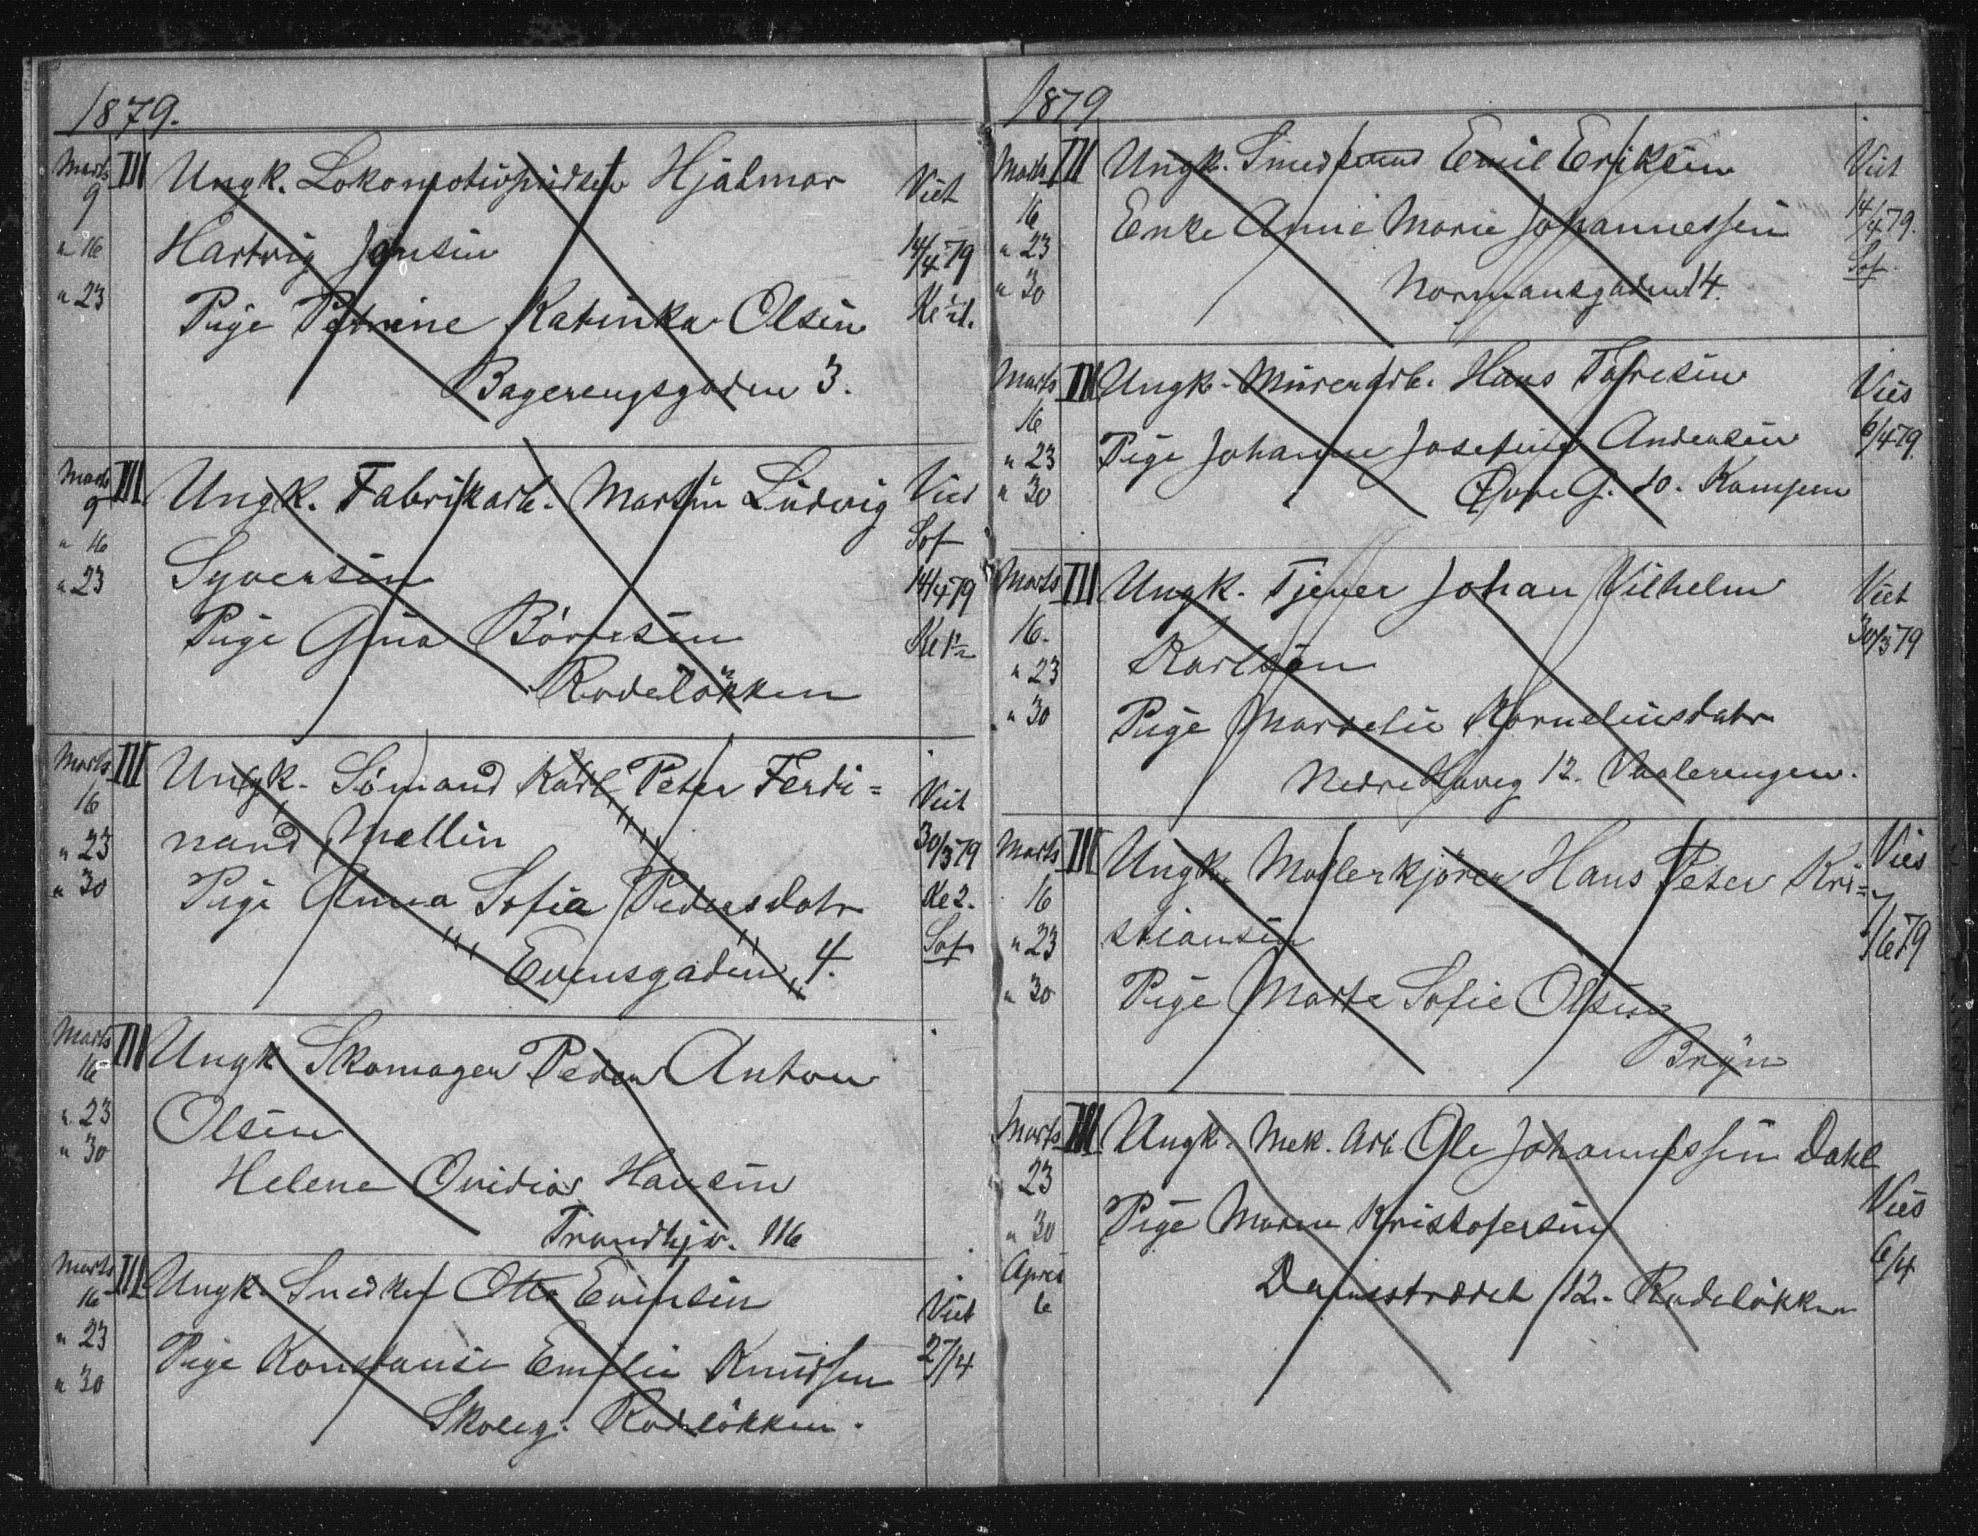 1879.
Marts 9 III Ungk. Lokomotivpudser Hjalmar Viet
" 16 Hartvig Jensen 14/4 79
" 23 Pige Petrine Katinka Olsen
Bagerengsgaden 3.
Marts 9 III Ungk. Fabrikarb. Martin Ludvig Viet
" 16 Syversen Sof
" 23 Pige Gina Børresen 14/4 79
Rodeløkken
Marts 16 III Ungk. Sømand Karl Peter Ferdi= Viet
" 23 nand Mellin 30/3 79
" 30 Pige Anna Sofia Pedersdatr Ke 2.
" " Evensgaden " 4. Sof
Marts 16 III Ungk Skomager Peder Anton
" 23 Olsen
" 30 Helene Ovidia Hansen
Trondhjv. 116
Marts 16 III Ungk. Snedker Otto Evensen Viet
" 23 Pige Konstanse Emilie Knudsen 27/4
" 30 Skoleg. Rodeløkken.
1879
Marts 16 III Ungk. Smedsvend Emil Eriksen Viet
" 23 Enke Anne Marie Johannessen 14/4 79.
" 30 Normansgaden 14. Sof.
Marts 16 III Ungk. Murerarb. Hans Toresen Vies
" 23 Pige Johanne Josefine Andersen 6/4 79
" 30 Øvre G. 10. Kampen
Marts III Ungk. Tjener Johan Vilhelm Viet
16. Karlsen 30/3 79
" 23
" 30 Pige Marselie Kornelinsdatr
Nedre Haveg 12. Vaalerengen.
Marts III Ungk. Møllerkjører Hans Peter Kri= Vies
16
" 23 stiansen 1/6 79
" 30 Pige Marte Sofie Olsen
Bryn
Marts III Ungk. Mek. Arb. Ole Johannessen Dahl
23 Pige Maren Kristofersen Vies
" 30 6/4
April 6 Danestrædet 12. Rodeløkken